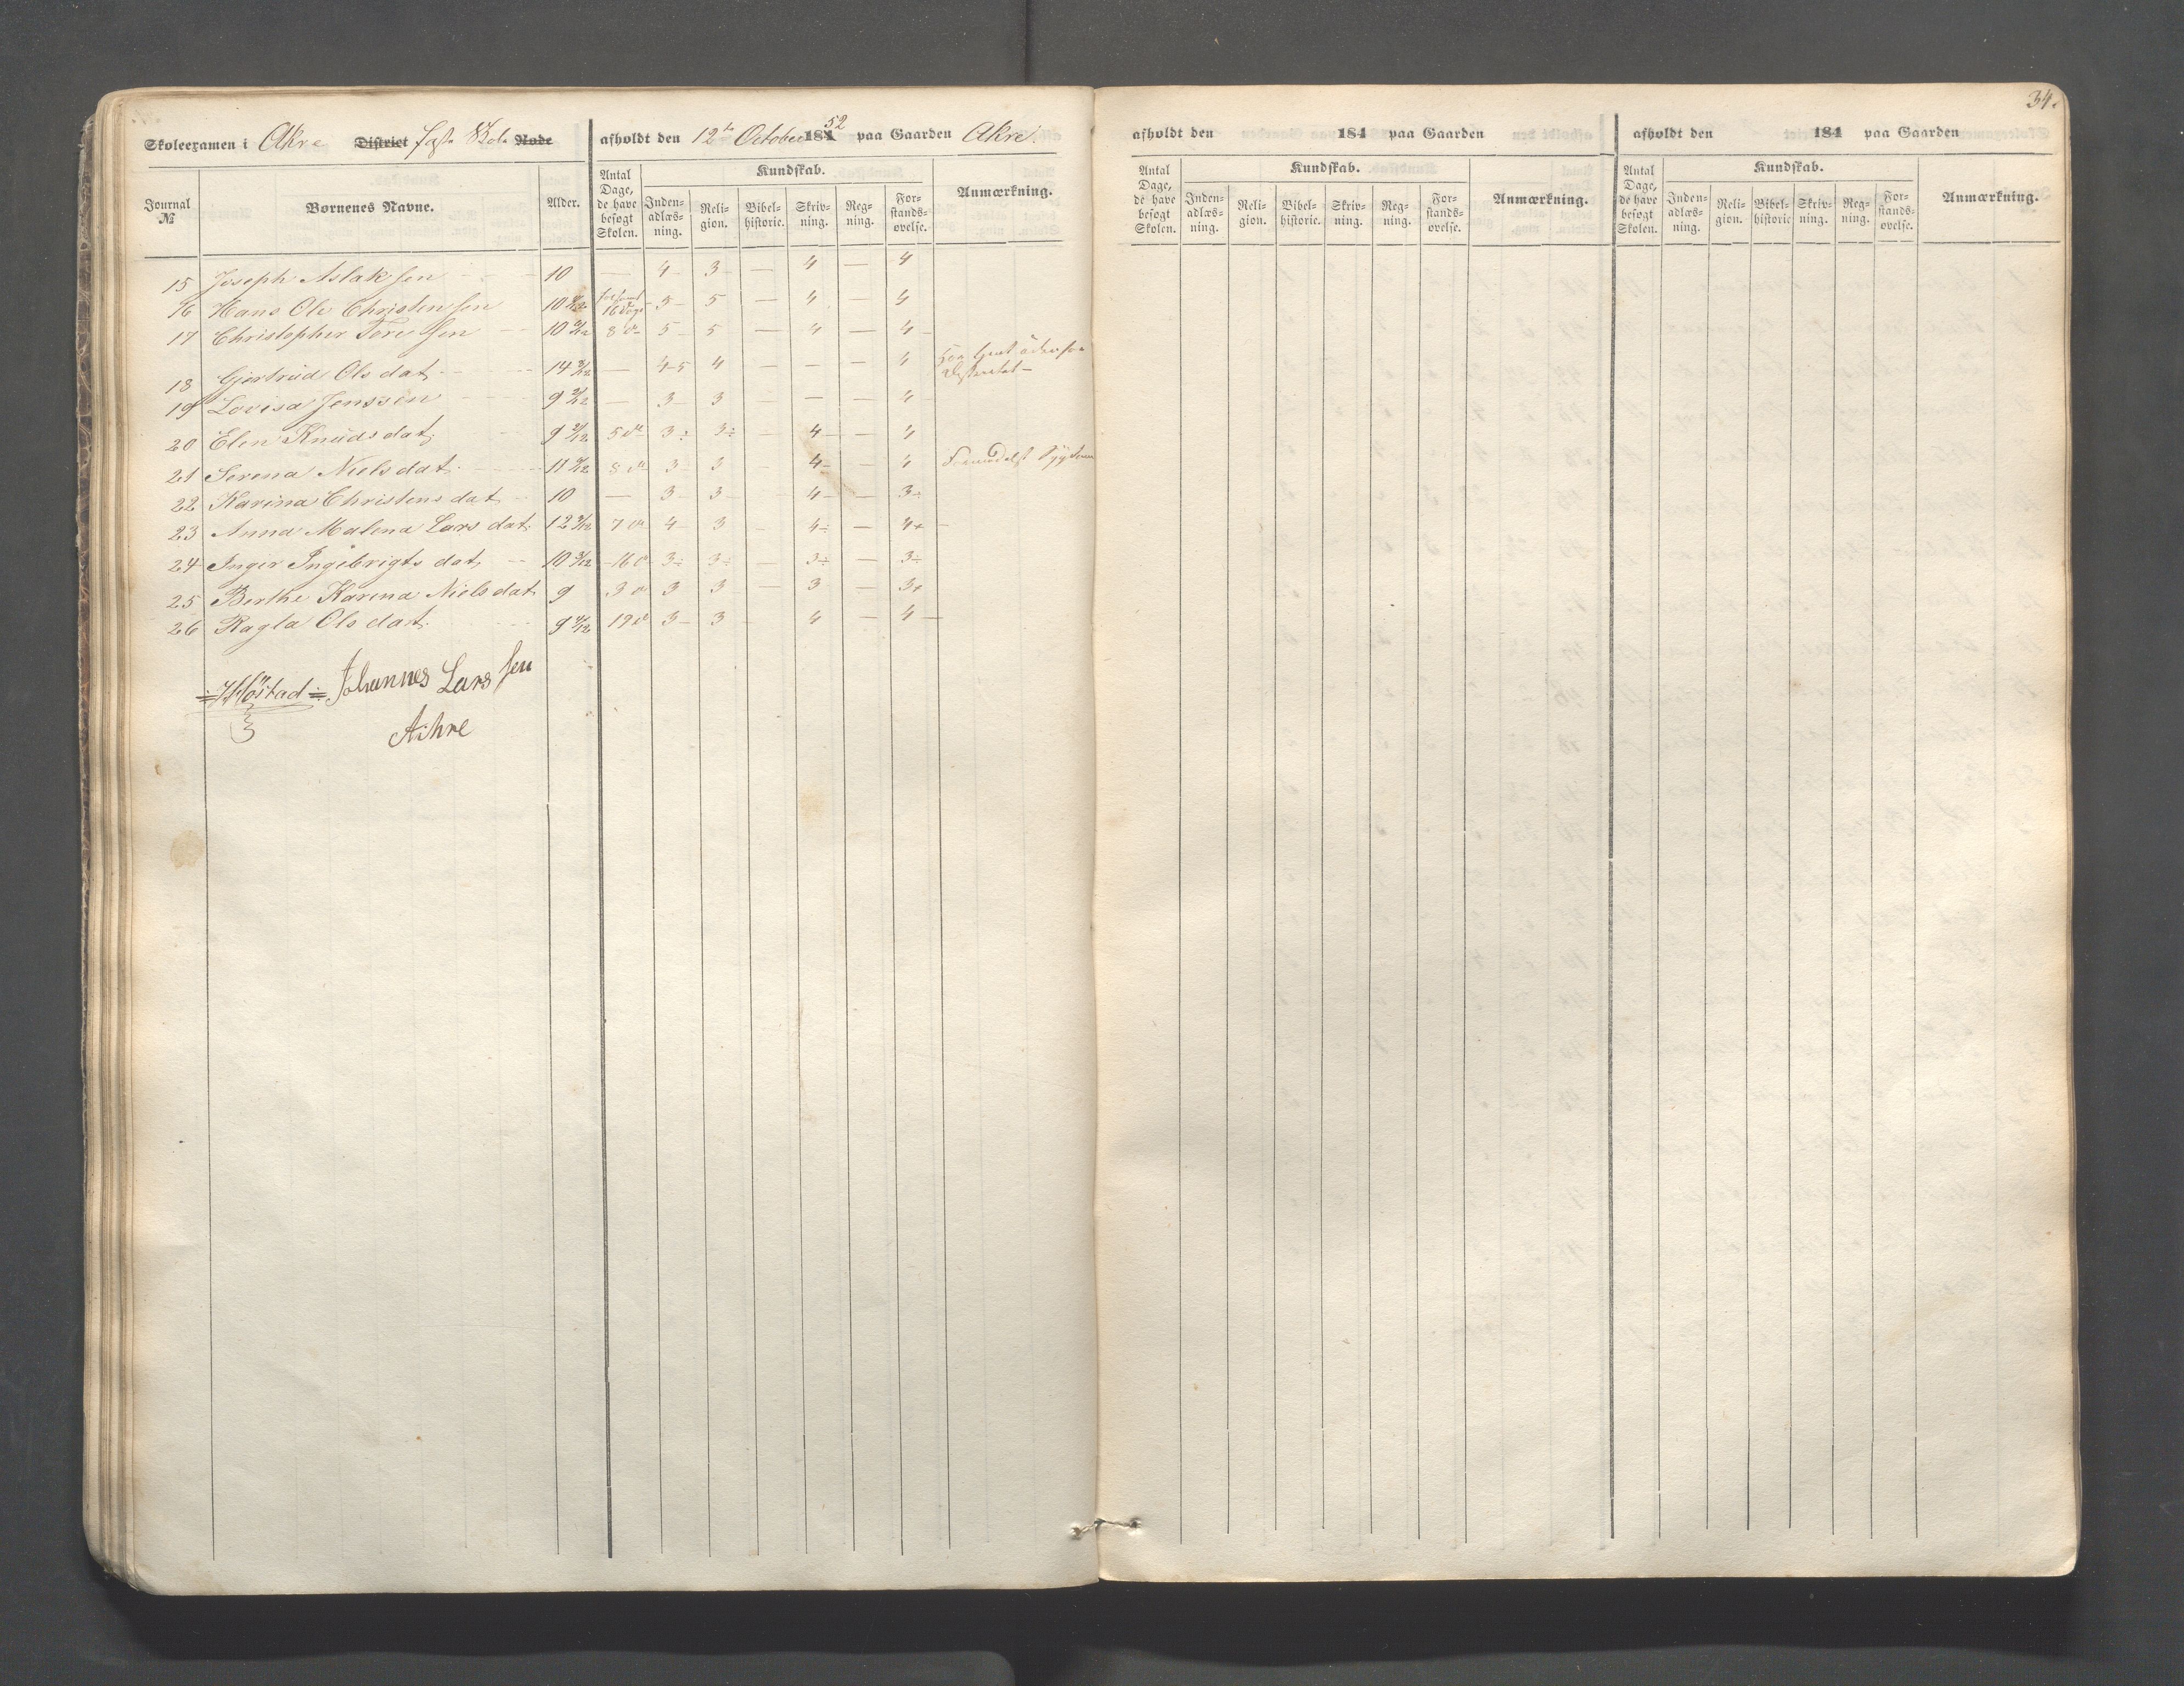 34.
Skoleexamen i Akre District fast Skole Rode afholdt den 12te October 1852 paa Gaarden Akre.
Journal № Børnenes Navne. Alder. Antal Dage, de have besøgt Skolen. Kundskab. Indenadlæsning. Religion. Bibelhistorie. Skrivning. Regning. Forstandsøvelse. Anmærkning.
15 Joseph Aslaksen 10 — 4 3 — 4 — 4
16 Hans Ole Christensen 10 16 Dage 3 5 — 4 — 4
17 Christopher Toresen 10 8 do 5 5 — 4 — 4
18 Gjertrud Olsdat. 14 — 4-5 4 — — — 4
19 Lovisa Jenssen 9 — 3 3 — — — 4
20 Elen Knudsdat. 9 5 do 3÷ 3÷ — 4 — 4
21 Serena Nielsdat. 11 8 do 3 3 — 4 — 4 Formedelst Sygdom
22 Karina Christensdat. 10 — 3 3 4 — 3÷
23 Anna Malena Larsdat. 12 7 do 4 3 — 4÷ — 4+
24 Inger Ingebrigtsdat. 10 16 do 3÷ 3÷ — 3÷ — 3÷
25 Berthe Karina Nielsdat. 9 3 do 3 3 — 3 — 3+
26 Ragla Olsdat. 9 19 do 3 3 — 4 — 4
Høstad Johannes Larssen
Achre
afholdt den 184 paa Gaarden
Antal Dage, de have besøgt Skolen. Kundskab. Indenadlæsning. Religion. Bibelhistorie. Skrivning. Regning. Forstandsøvelse. Anmærkning.
afholdt den 184 paa Gaarden
Antal Dage, de have besøgt Skolen. Kundskab. Indenadlæsning. Religion. Bibelhistorie Skrivning. Regning. Forstandsøvelse. Anmærkning.